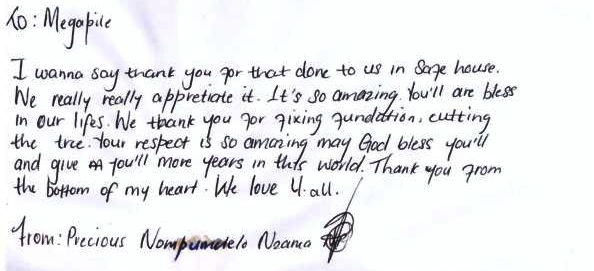 To: Megapile
I wanna say thank you for that done to us in Safe house.
We really really appretiate it. It's so amazing. You'll are bless
in our lifes. We thank you for fixing fundation, cutting
the tree. Your respect is so amazing may God bless you'll
and give you'll more years in this world. Thank you from
the bottom of my heart. We love U all.
From: Precious